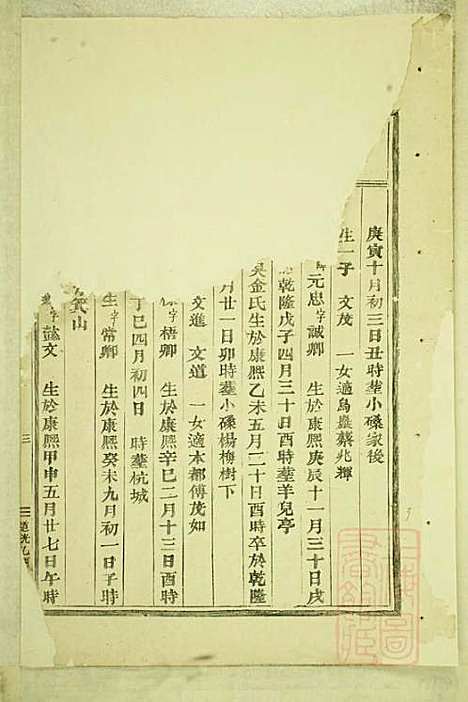 庚寅十月初三日丑時塟小磉家後
生一子 文茂 一女適烏蛊蔡兆輝
字元忠 字誠卿 生於康熙庚辰十一月三十日戌
乾隆戊子四月三十日酉時塟羊兒亭
吳金氏生於康熙乙未五月二十日酉時卒於乾隆
月廿一日卯時塟小磉楊梅樹下
文進 文道 一女適本都傅茂如
字梧卿 生於康熙辛巳二月十三日酉時
丁巳四月初四日 時塟杭城
生 字常卿 生於康熙癸未九月初一日子時
箕山
字懿文 生於康熙甲申五月廿七日午時
三